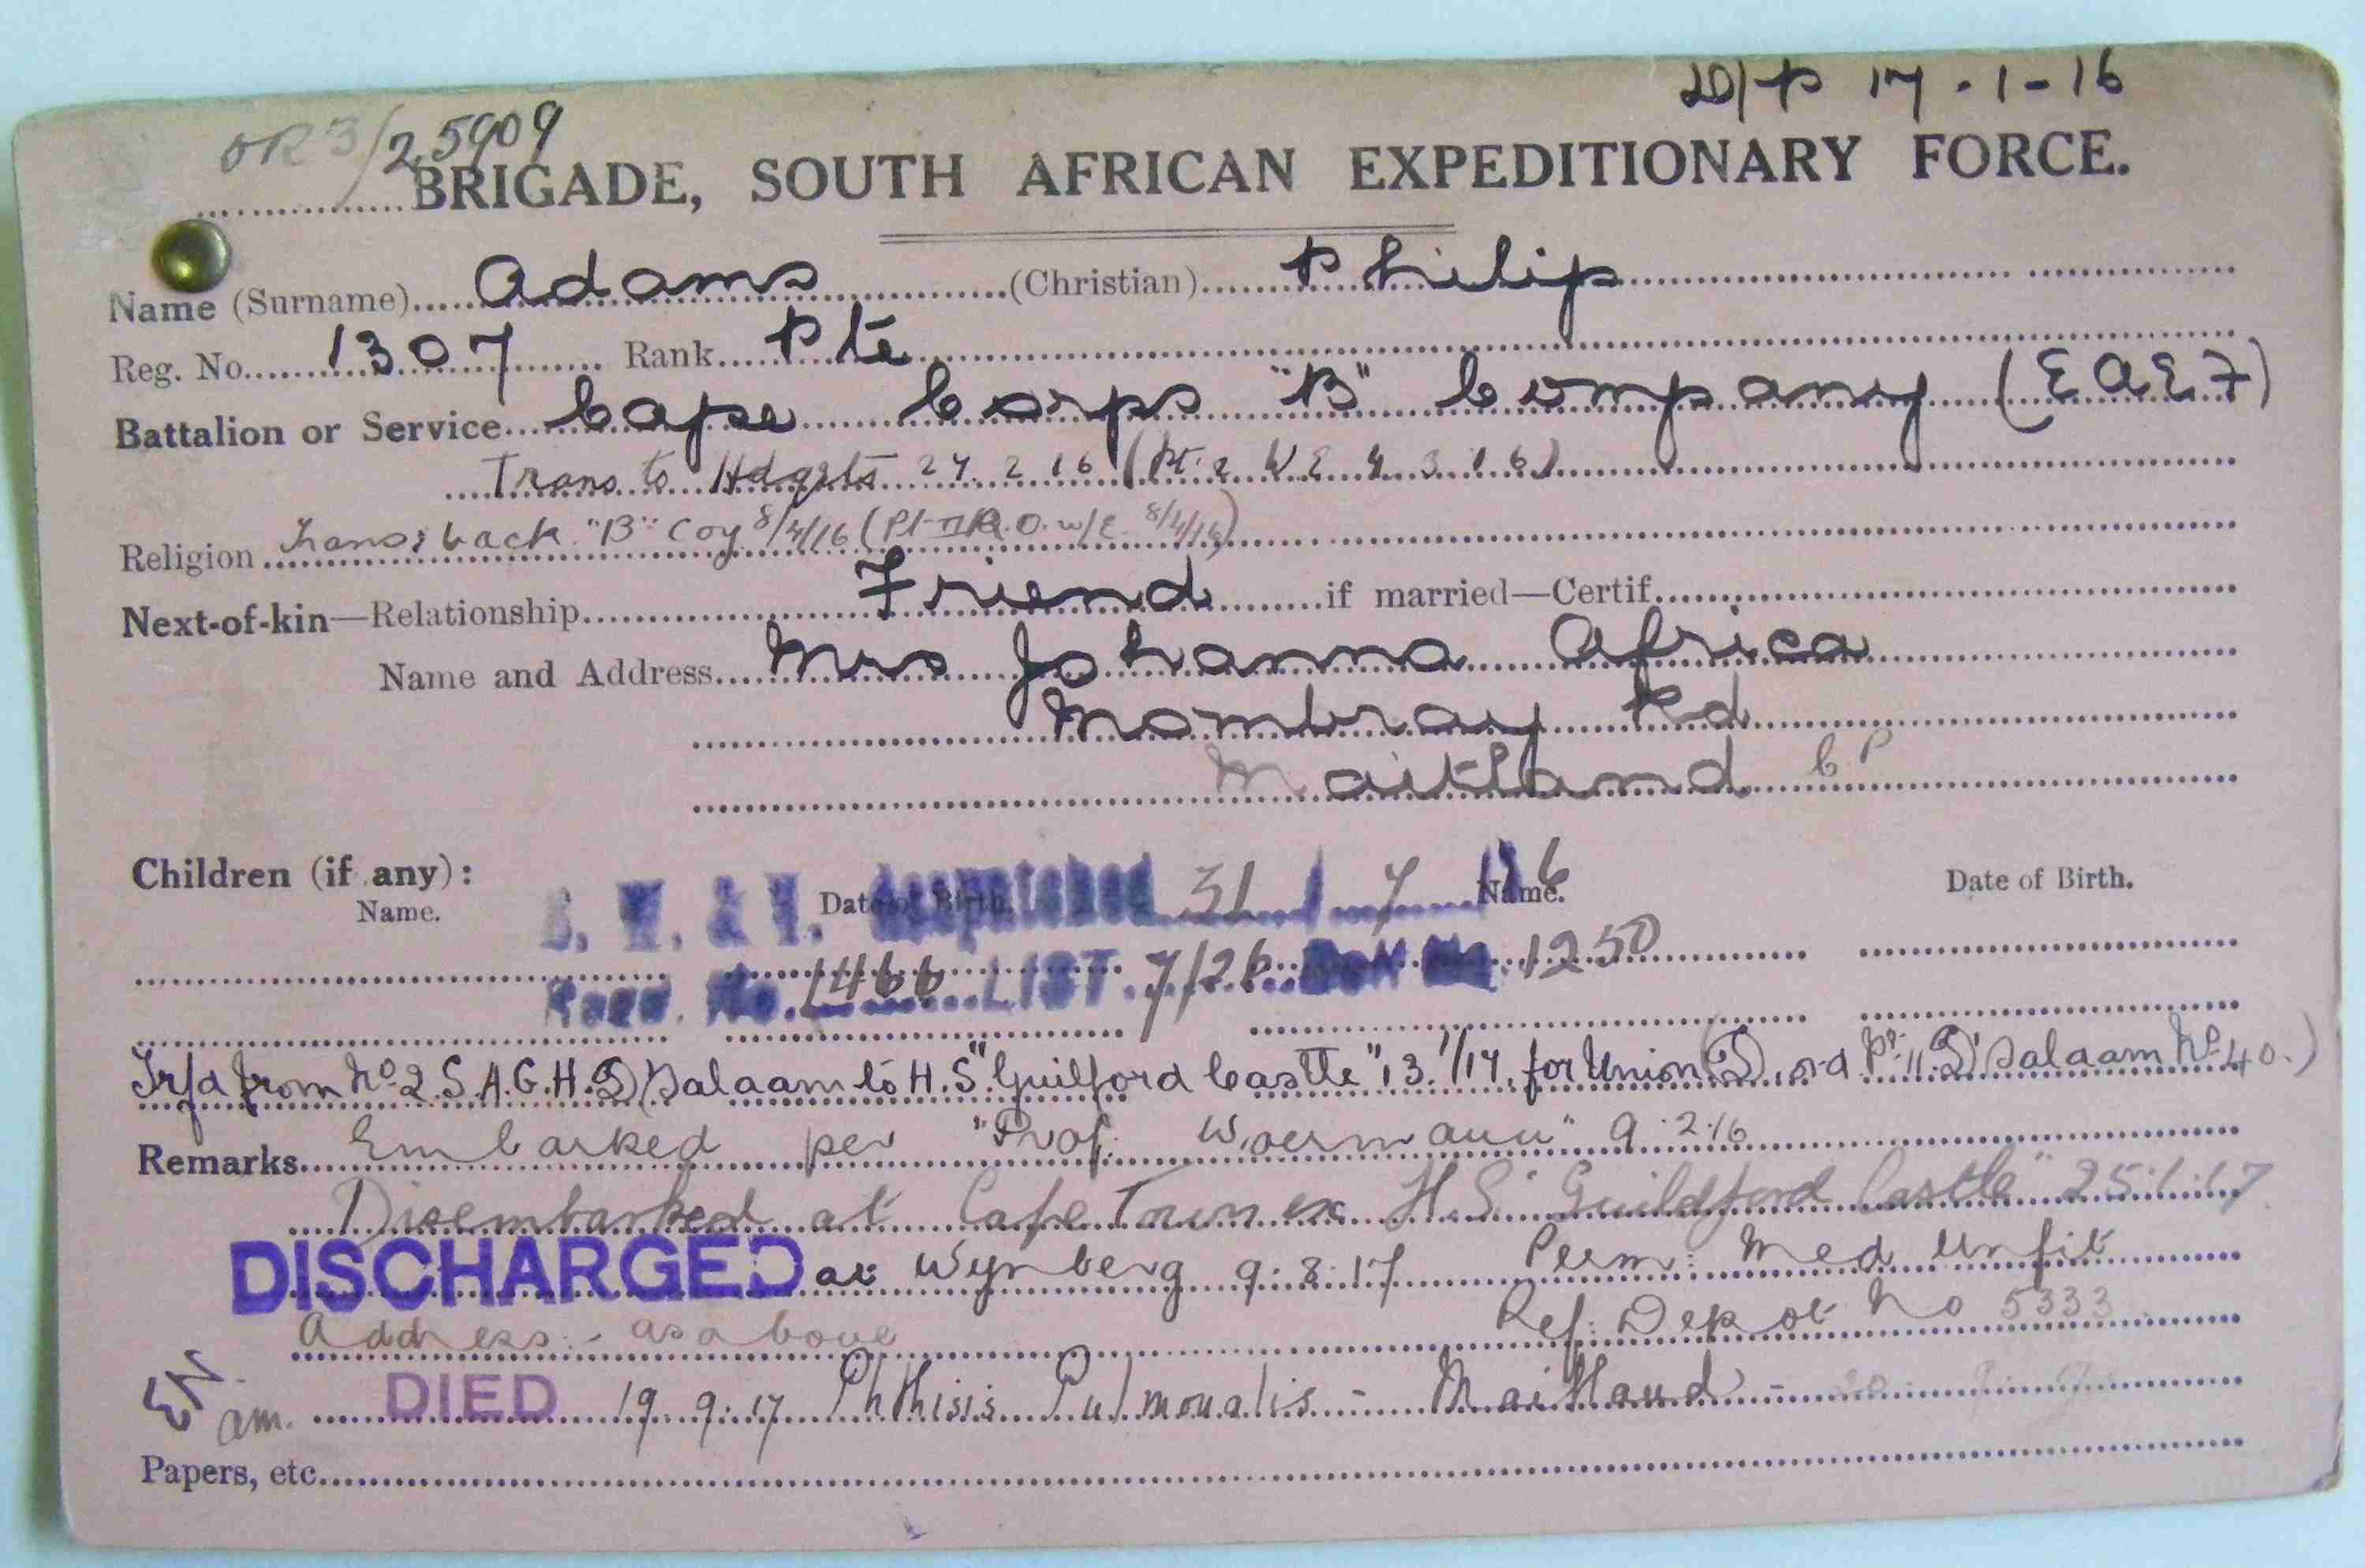 D/P 17.1-16
OR3/25909
BRIGADE, SOUTH AFRICAN EXPEDITIONARY FORCE.
Name (Surname) Adams (Christian) Philip
Reg. No. 1307 Rank Pte
Battalion or Service Cape Corps "B" Company (EAEF)
Trans to Hdqrts 27.2.16 (Pt. 2 W E 4 3 16)
Religion Trans: back "B" Coy 8/4/16 (Pt II R.O. w/E 8/4/16)
Next-of-kin—Relationship Friend if married—Certif.
Name and Address Mrs Johanna Africa
Mombray Rd
Maitland C P
Children (if any):
Name. Date of Birth. Name. Date of Birth.
B. W. & V. despatched 31 / 7 / 26
Regd. No. 1466 LIST. 7/26 Box No. 1250
Trfd from No 2 S.A.G.H. D/Salaam to H.S "Guilford Castle" 13.1/17. for Union (D. o-d Pt. 11. D'Salaam No 40.)
Remarks Embarked per "Prof. Woermann" 9.2.16
Disembarked at Cape Town ex H.S. "Guildford Castle" 25.1.17.
DISCHARGED at Wynberg 9.8.17 Perm: Med Unfit
Address:- as above Ref: Depot No 5333
EN
am. DIED 19.9.17 Phthisis Pulmonalis - Maitland -
Papers, etc.